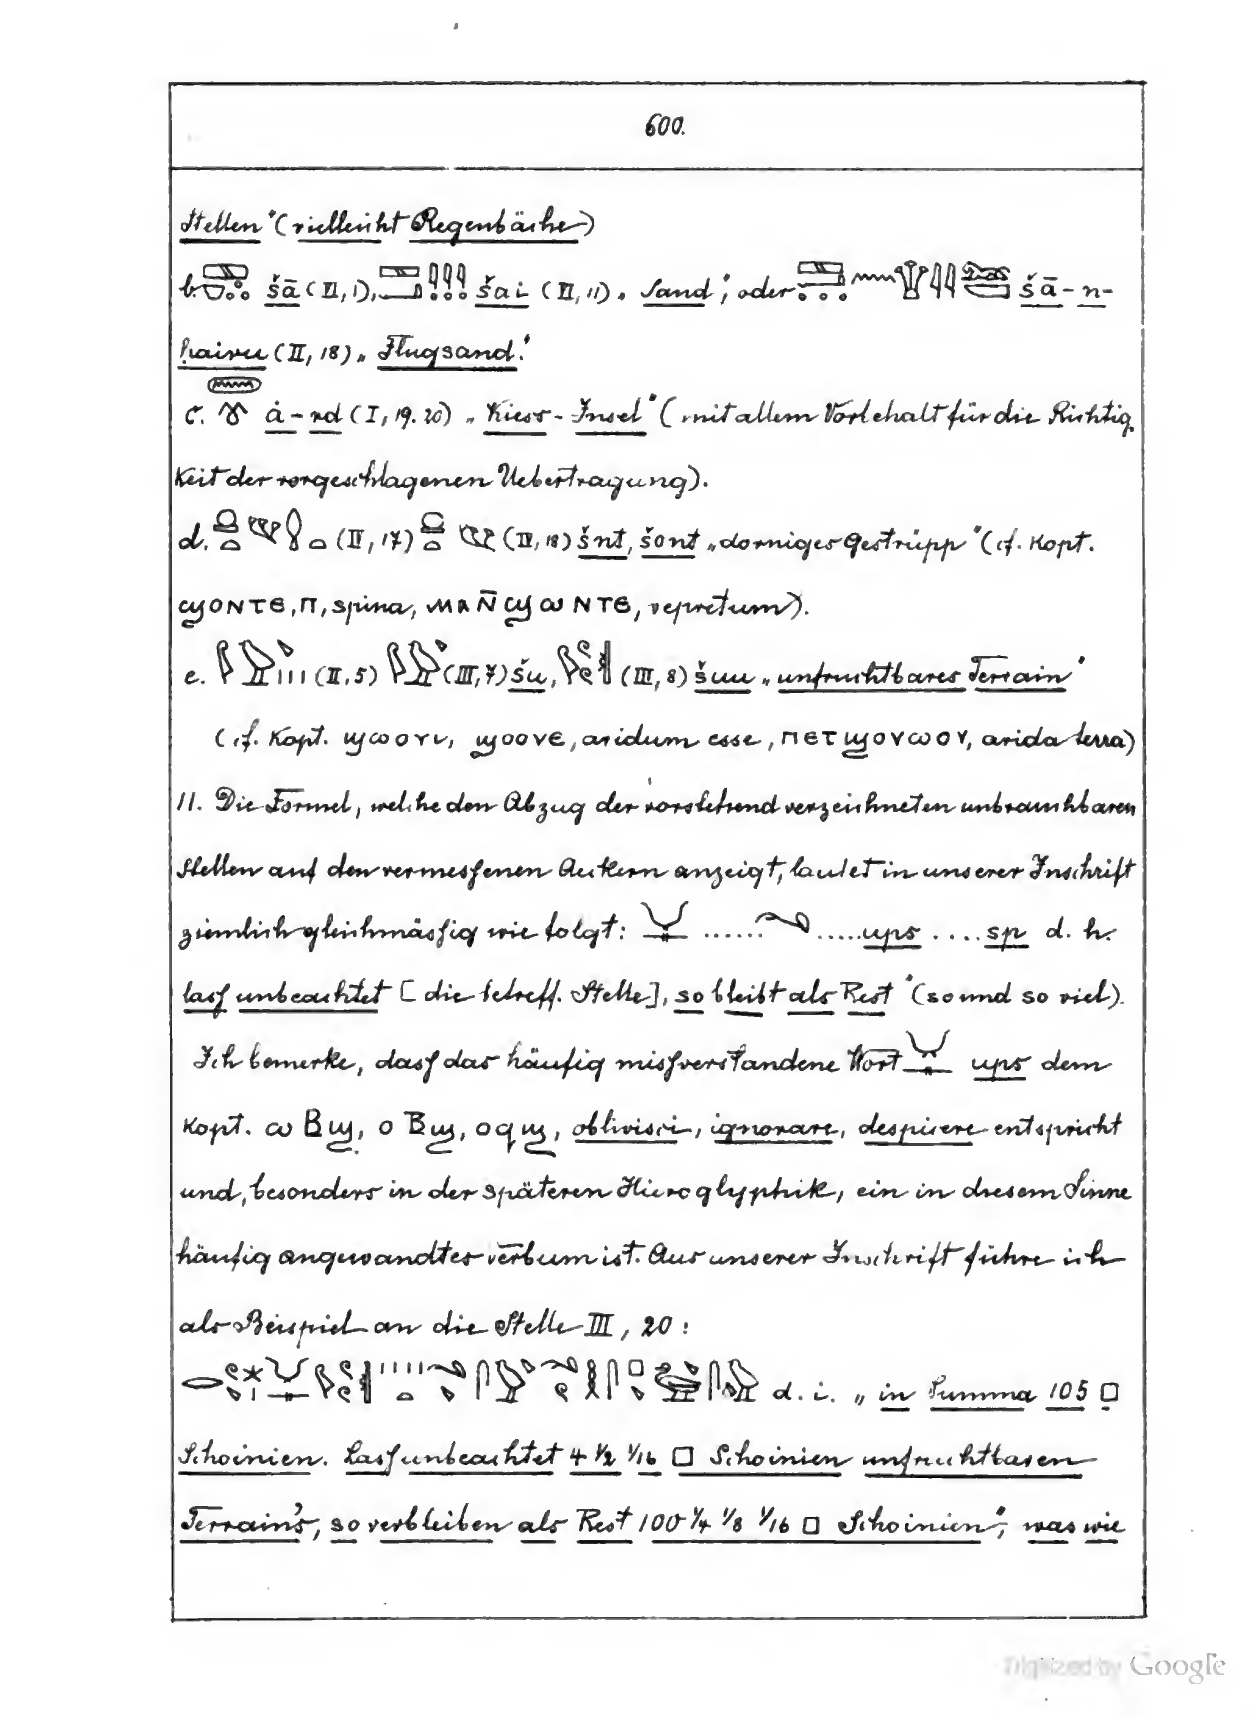 600.
Stellen" (vielleicht Regenbäche)
b. šā (II, 1), šai (II, 11) „Sand", oder šā-n-
hairu (II, 18) „Flugsand."
c. ȧ-rd (I, 19.20) „Kiess-Insel" (mit allem Vorbehalt für die Richtig
keit der vorgeschlagenen Uebertragung).
d. (II, 17) (II, 18) šnt, šont „dorniges Gestrüpp" (cf. Kopt.
ϣⲟⲛⲧⲉ, ⲡ, spina, ⲙⲁⲛ̄ϣⲱⲛⲧⲉ, vepretum).
e. (II, 5) (III, 7) šu, (III, 8) šuu „unfruchtbares Terrain"
(cf. Kopt. ϣⲱⲟⲩⲓ, ϣⲟⲟⲩⲉ, aridum esse, ⲡⲉⲧϣⲟⲩⲱⲟⲩ, arida terra)
11. Die Formel, welche den Abzug der vorstehend verzeichneten unbrauchbaren
Stellen auf den vermessenen Aeckern anzeigt, lautet in unserer Inschrift
ziemlich gleichmässig wie folgt: ...... ..... ups .... sp d. h.
lass unbeachtet [die betreff. Stelle], so bleibt als Rest" (so und so viel).
Ich bemerke, dass das häufig missverstandene Wort ups dem
Kopt. ⲱⲃϣ, ⲟⲃϣ, ⲟϥϣ, oblivisci, ignorare, despicere entspricht
und, besonders in der späteren Hieroglyphik, ein in diesem Sinne
häufig angewandtes verbum ist. Aus unserer Inschrift führe ich
als Beispiel an die Stelle III, 20:
d. i. „in Summa 105 □
Schoinien. Lass unbeachtet 4 ½ 1/16 □ Schoinien unfruchtbaren
Terrain's, so verbleiben als Rest 100 ¼ ⅛ 1/16 □ Schoinien", was wie
Digitized by Google